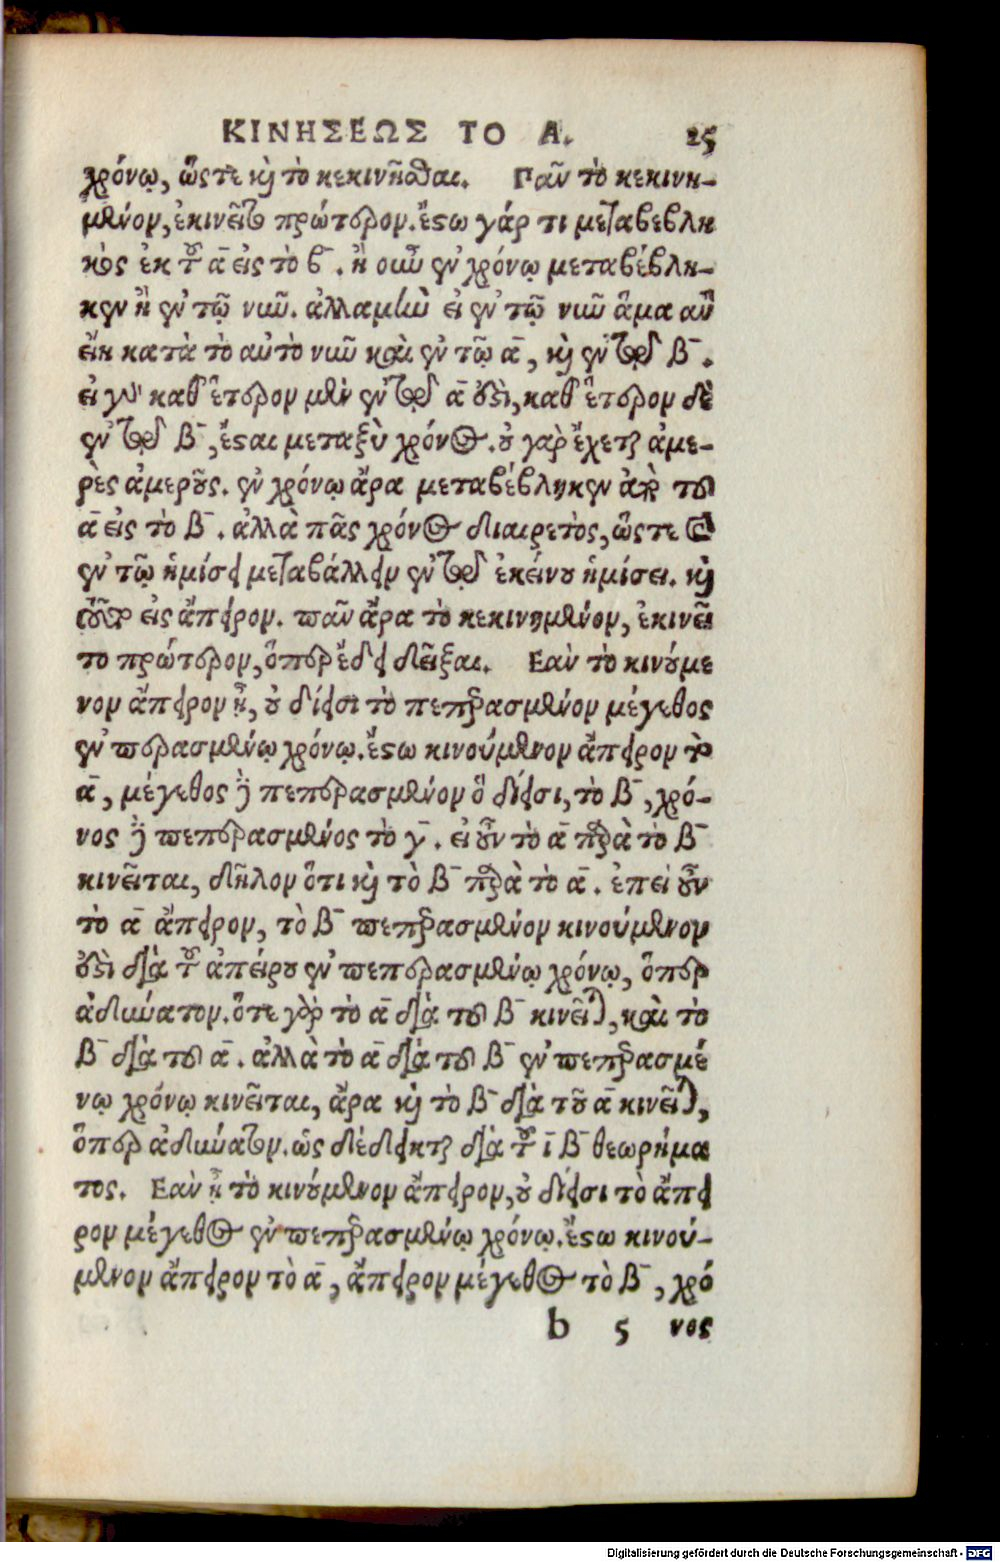 ΚΙΝΗΣΕΩΣ ΤΟ Α. 25
χρόνῳ, ὥςτε κὶ τὸ κεκινῆσθαι. Γαῖν τὸ κεκινη-
μένον, ἐκινεῖτο πρότερον. ἔςω γάρ τι μεταβεβλη
κὸς ἐκ τοῦ α̅ εἰς τὸ β̅. ἢ οὖν ἐν χρόνῳ μεταβέβλη-
κεν ἢ ἐν τῷ νῦν. ἀλλαμὴν εἰ ἐν τῷ νῦν ἅμα ἂν
εἴη κατὰ τὸ αὐτὸ νῦν καὶ ἐν τῷ α̅, κὶ ἐν τῷ β̅.
εἰ γὰρ καθ᾽ ἕτερον μὲν ἐν τῷ α̅ ὅδὶ, καθ᾽ ἕτερον δὲ
ἐν τῷ β̅, ἔςαι μεταξὺ χρόνος. οὐ γὰρ ἔχεται ἀμε-
ρὲς ἀμεροῦς. ἐν χρόνῳ ἄρα μεταβέβληκεν ἀπὸ τοῦ
α̅ εἰς τὸ β̅. ἀλλὰ πᾶς χρόνος διαιρετὸς, ὥςτε καὶ
ἐν τῷ ἡμίσει μεταβάλλειν ἐν τῷ ἐκείνου ἡμίσει. κὶ
τοῦτο εἰς ἄπειρον. πᾶν ἄρα τὸ κεκινημένον, ἐκινεῖ
το πρότερον, ὅπερ ἔδει δεῖξαι. Εαν τὸ κινούμε
νον ἄπειρον ᾖ, οὐ δίεισι τὸ πεπερασμένον μέγεθος
ἐν πεπερασμένῳ χρόνῳ. ἔςω κινούμενον ἄπειρον τὸ
α̅, μέγεθος δὲ πεπερασμένον ὃ δίεισι, τὸ β̅, χρό-
νος δὲ πεπερασμένος τὸ γ̅. εἰ οὖν τὸ α̅ παρὰ τὸ β̅
κινεῖται, δῆλον ὅτι κὶ τὸ β̅ παρὰ τὸ α̅. ἐπεὶ οὖν
τὸ α̅ ἄπειρον, τὸ β̅ πεπερασμένον κινούμενον
ὅδὶ διὰ τοῦ ἀπείρου ἐν πεπερασμένῳ χρόνῳ, ὅπερ
ἀδύνατον. ὅτε γὰρ τὸ α̅ διὰ τοῦ β̅ κινεῖται, καὶ τὸ
β̅ διὰ τοῦ α̅. ἀλλὰ τὸ α̅ διὰ τοῦ β̅ ἐν πεπερασμέ
νῳ χρόνῳ κινεῖται, ἄρα κὶ τὸ β̅ διὰ τοῦ α̅ κινεῖται,
ὅπερ ἀδύνατον. ὡς δέδεικται διὰ τοῦ ι̅β̅ θεωρήμα
τος. Εαν ᾖ τὸ κινούμενον ἄπειρον, οὐ δίεισι τὸ ἄπει
ρον μέγεθος ἐν πεπερασμένῳ χρόνῳ. ἔςω κινού-
μενον ἄπειρον τὸ α̅, ἄπειρον μέγεθος τὸ β̅, χρό
b 5 νος
Digitalisierung gefördert durch die Deutsche Forschungsgemeinschaft - DFG